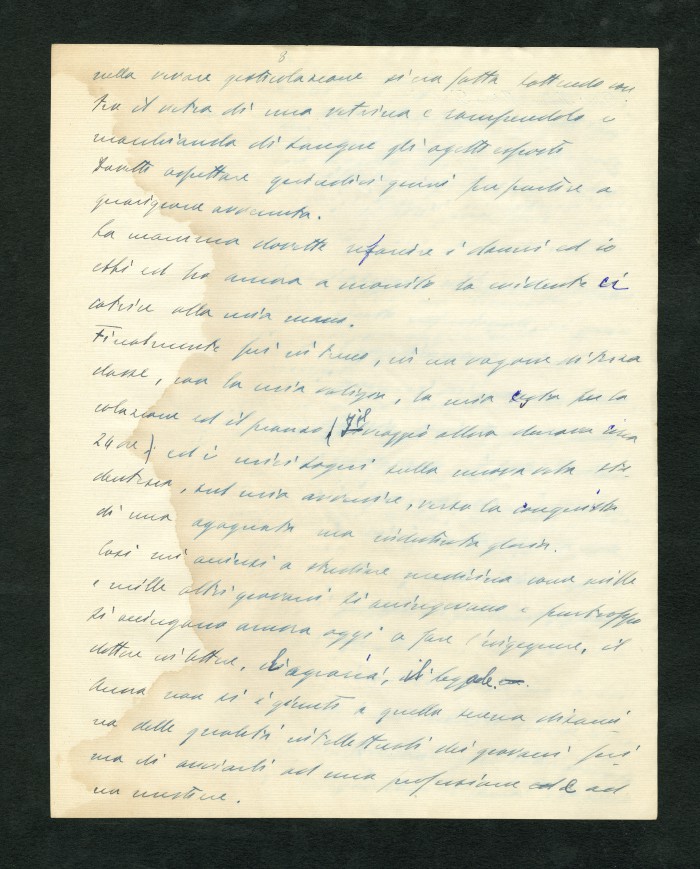 8
nella vivace gesticolazione si era fatta battendo con
tro il vetro di una vetrina e rompendolo e
macchiando di sangue gli oggetti esposti
Dovetti aspettare quindici giorni per partire a
guarigione avvenuta.
La mamma dovette rifondere i danni ed io
ebbi ed ho ancora a monito la evidente ci
catrice alla mia mano.
Finalmente fui in treno, in un vagone di terza
classe, con la mia valigia, la mia cesta per la
colazione ed il pranzo (il viaggio allora durava circa
24 ore) ed i miei sogni sulla nuova vita stu
dentesca, sul mio avvenire, verso la conquista
di una agognata ma indistinta gloria.
Così mi accinsi a studiare medicina come mille
e mille altri giovani si accingevano e purtroppo
si accingono ancora oggi a fare l'ingegnere, il
dottore in lettere, in agraria, il legale.
Ancora non si è giunti a quella serena disami
na delle qualità intellettuali dei giovani pri
ma di avviarli ad una professione od ad
un mestiere.